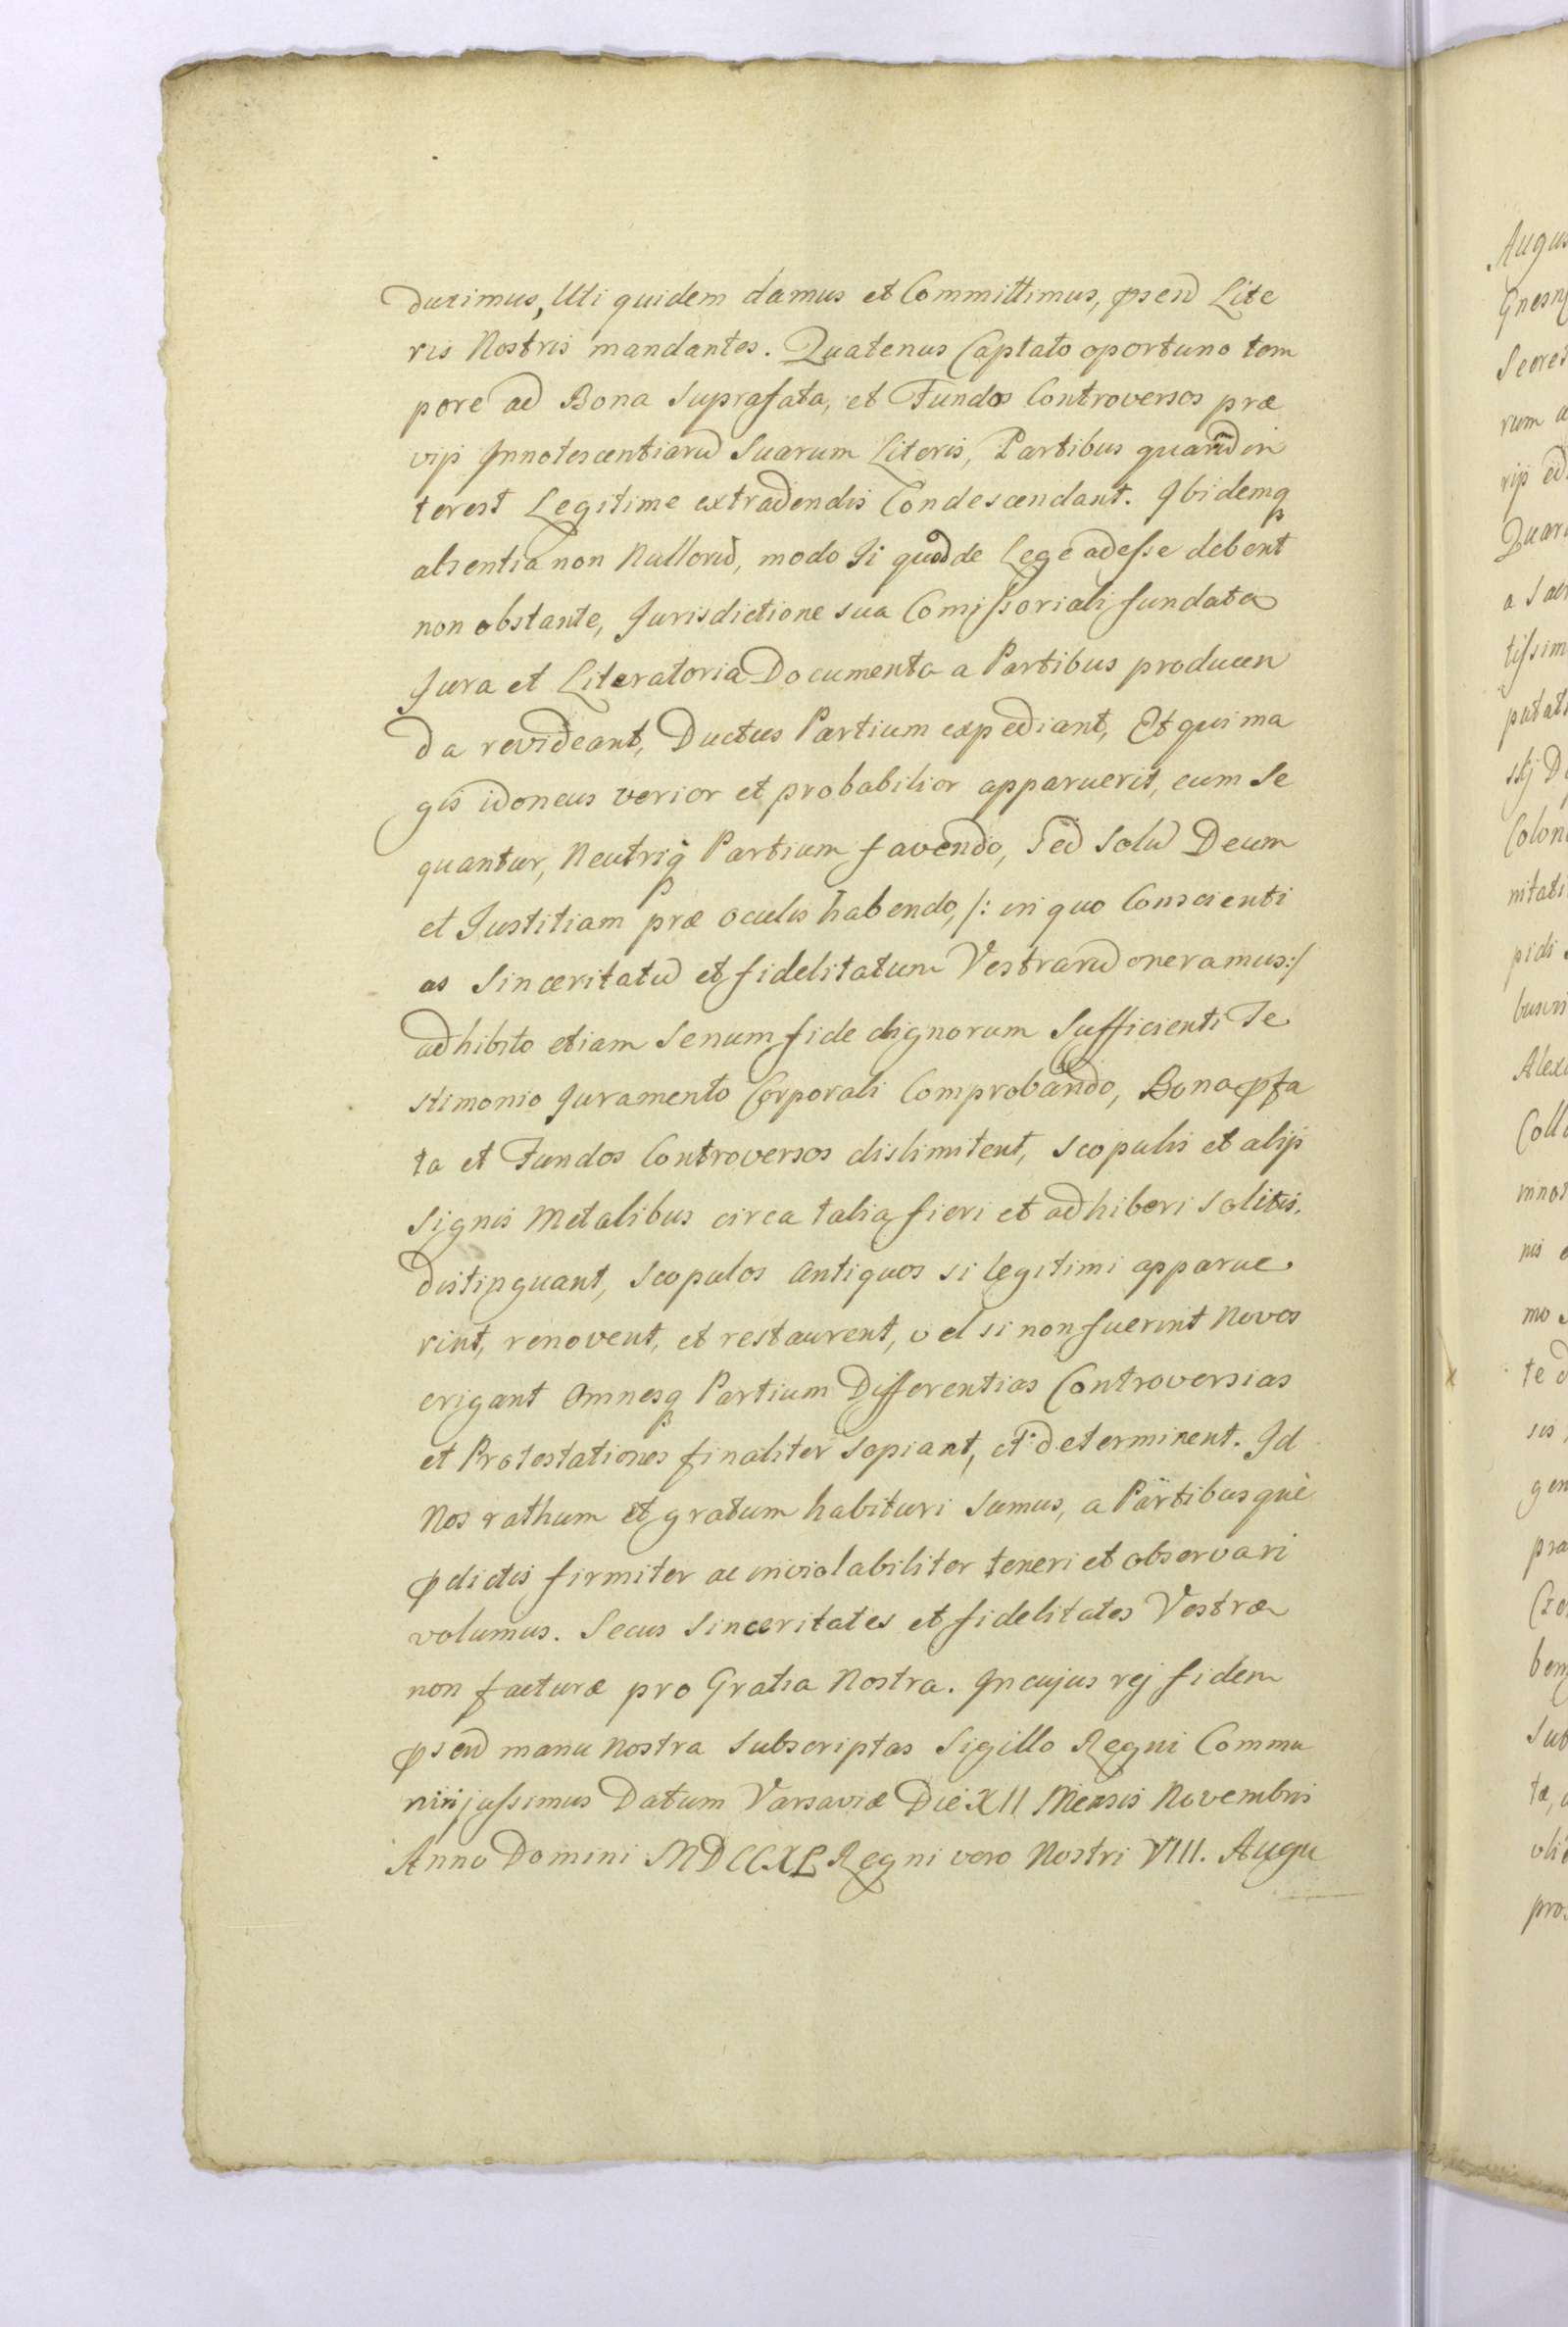 duximus, Uti quidem damus et Committimus, psend Lite
ris Nostris mandantes. Quatenus Captato oportuno tem
pore ad Bona Suprafata, et Fundos Controversos præ
vijs Innotescentiarum Suarum Literis, Partibus quarum in
terest Legitime extradendis Condescendant. Ibidemq
absentia non Nullorum, modo Ii quod de Lege adesse debent
non obstante, Jurisdictione sua Comissoriali fundata
Jura et Literatoria Documenta a Partibus producen
da revideant, Ductus Partium expediant, Et qui ma
gis idoneus verior et probabilior apparuerit, eum Se
quantur, Neutriq Partium favendo, Sed Solum Deum
et Justitiam præ oculis habendo, /: in quo Conscienti
as Sinceritatum et fidelitatum Vestrarum oneramus :/
adhibito etiam Senum fide dignorum Sufficienti Te
stimonio Juramento Corporali Comprobando, Bona pfa
ta et Fundos Controversos dislimitent, Scopulis et alijs
Signis Metalibus circa talia fieri et adhiberi Solitis.
distinguant, Scopulos Antiquos si legitimi apparue
rint, renovent, et restaurent, vel si non fuerint Novos
erigant Omnesq Partium Differentias Controversias
et Protestationes finaliter Sopiant, et determinent. Id
Nos rathum et gratum habituri Sumus, a Partibusque
pdictis firmiter ac inviolabiliter teneri et observari
volumus. Secus Sinceritates et fidelitates Vestræ
non facturæ pro Gratia Nostra. In cujus rej fidem
psend manu Nostra Subscriptas Sigillo Regni Commu
niri jussimus Datum Varsaviæ Die XII Mensis Novembris
Anno Domini MDCCXL Regni vero Nostri VIII. Augu